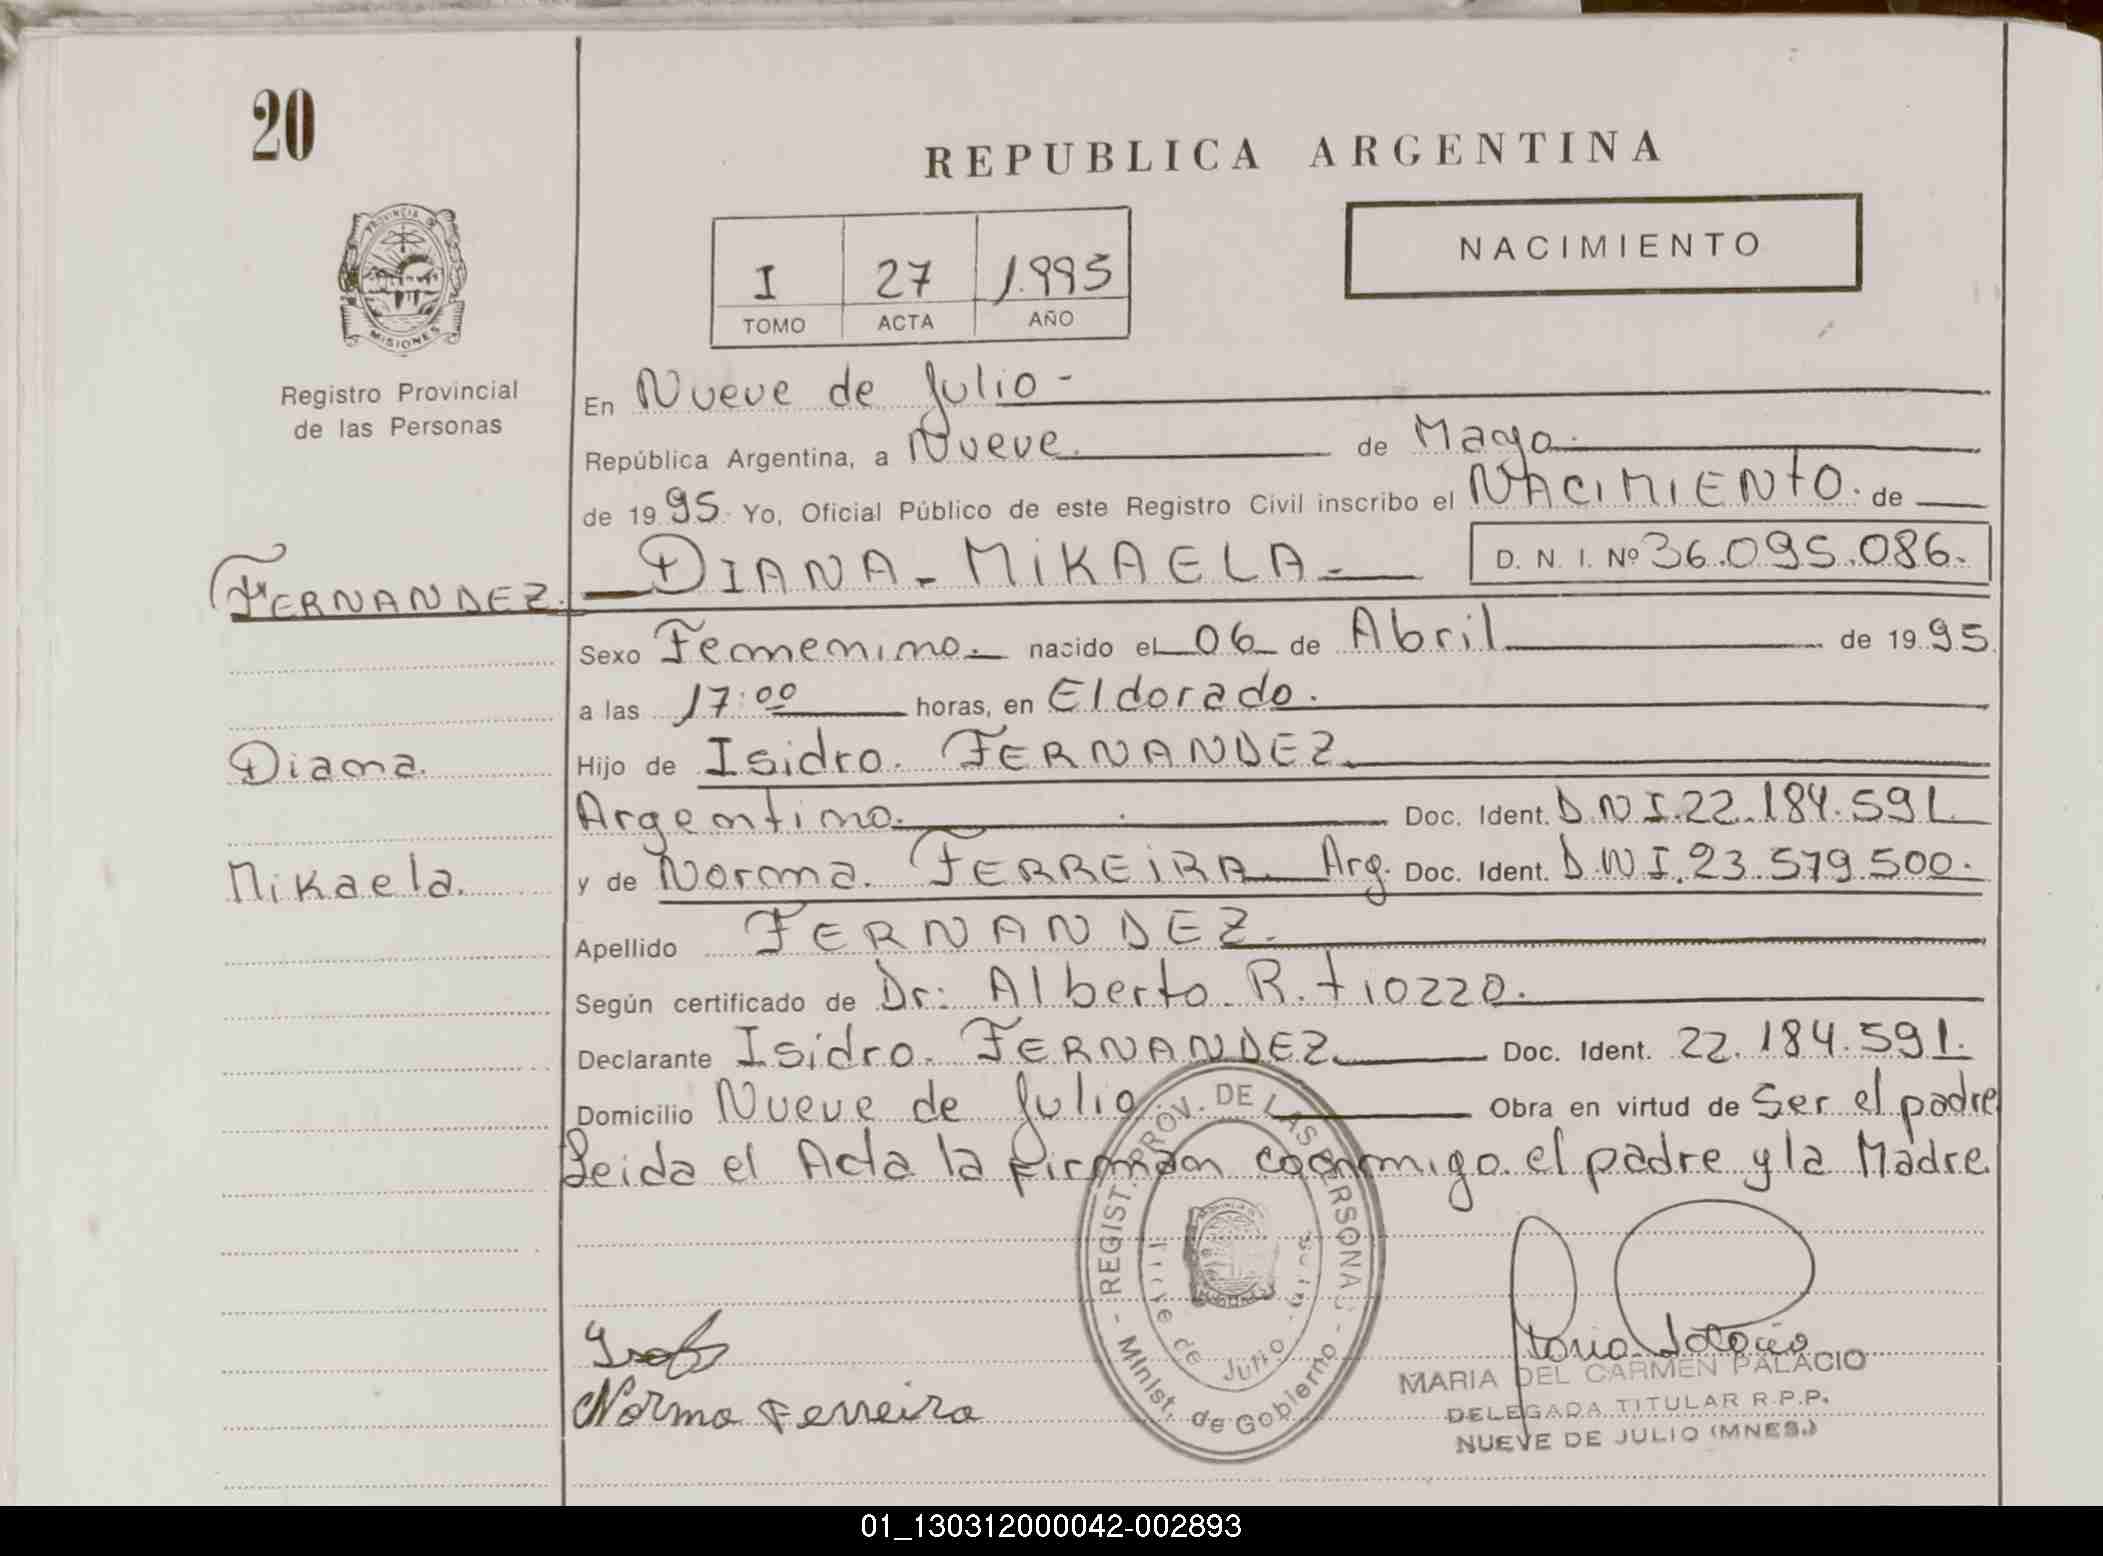 20
REPUBLICA ARGENTINA
NACIMIENTO
I 27 1.995
TOMO ACTA AÑO
PROVINCIA DE
MISIONES
Registro Provincial
de las Personas
En Nueve de Julio -
República Argentina, a Nueve. de Mayo.
de 19 95. Yo, Oficial Público de este Registro Civil inscribo el NACIMIENTO. de
FERNANDEZ. DIANA - MiKAELA - D. N. I. Nº 36.095.086.
Sexo Femenino. nacido el 06 de Abril de 19 95
a las 17:00 horas, en Eldorado.
Diana. Hijo de Isidro. FERNANDEZ.
Argentino. Doc. Ident. D.N.I. 22.184.591.
Mikaela. y de Norma. FERREiRA. Arg. Doc. Ident. D.N.I. 23.579.500.
Apellido FERNANDEZ.
Según certificado de Dr: Alberto. R. tiozzo.
Declarante Isidro. FERNANDEZ. Doc. Ident. 22.184.591.
Domicilio Nueve de Julio Obra en virtud de Ser el padre
Leida el Acta la firman conmigo. el padre y la Madre.
REGIST. PROV. DE LAS PERSONAS
Nueve de Julio
Minist. de Gobierno
Norma Ferreira
MARIA DEL CARMEN PALACIO
DELEGADA TITULAR R.P.P.
NUEVE DE JULIO (MNES.)
01_130312000042-002893